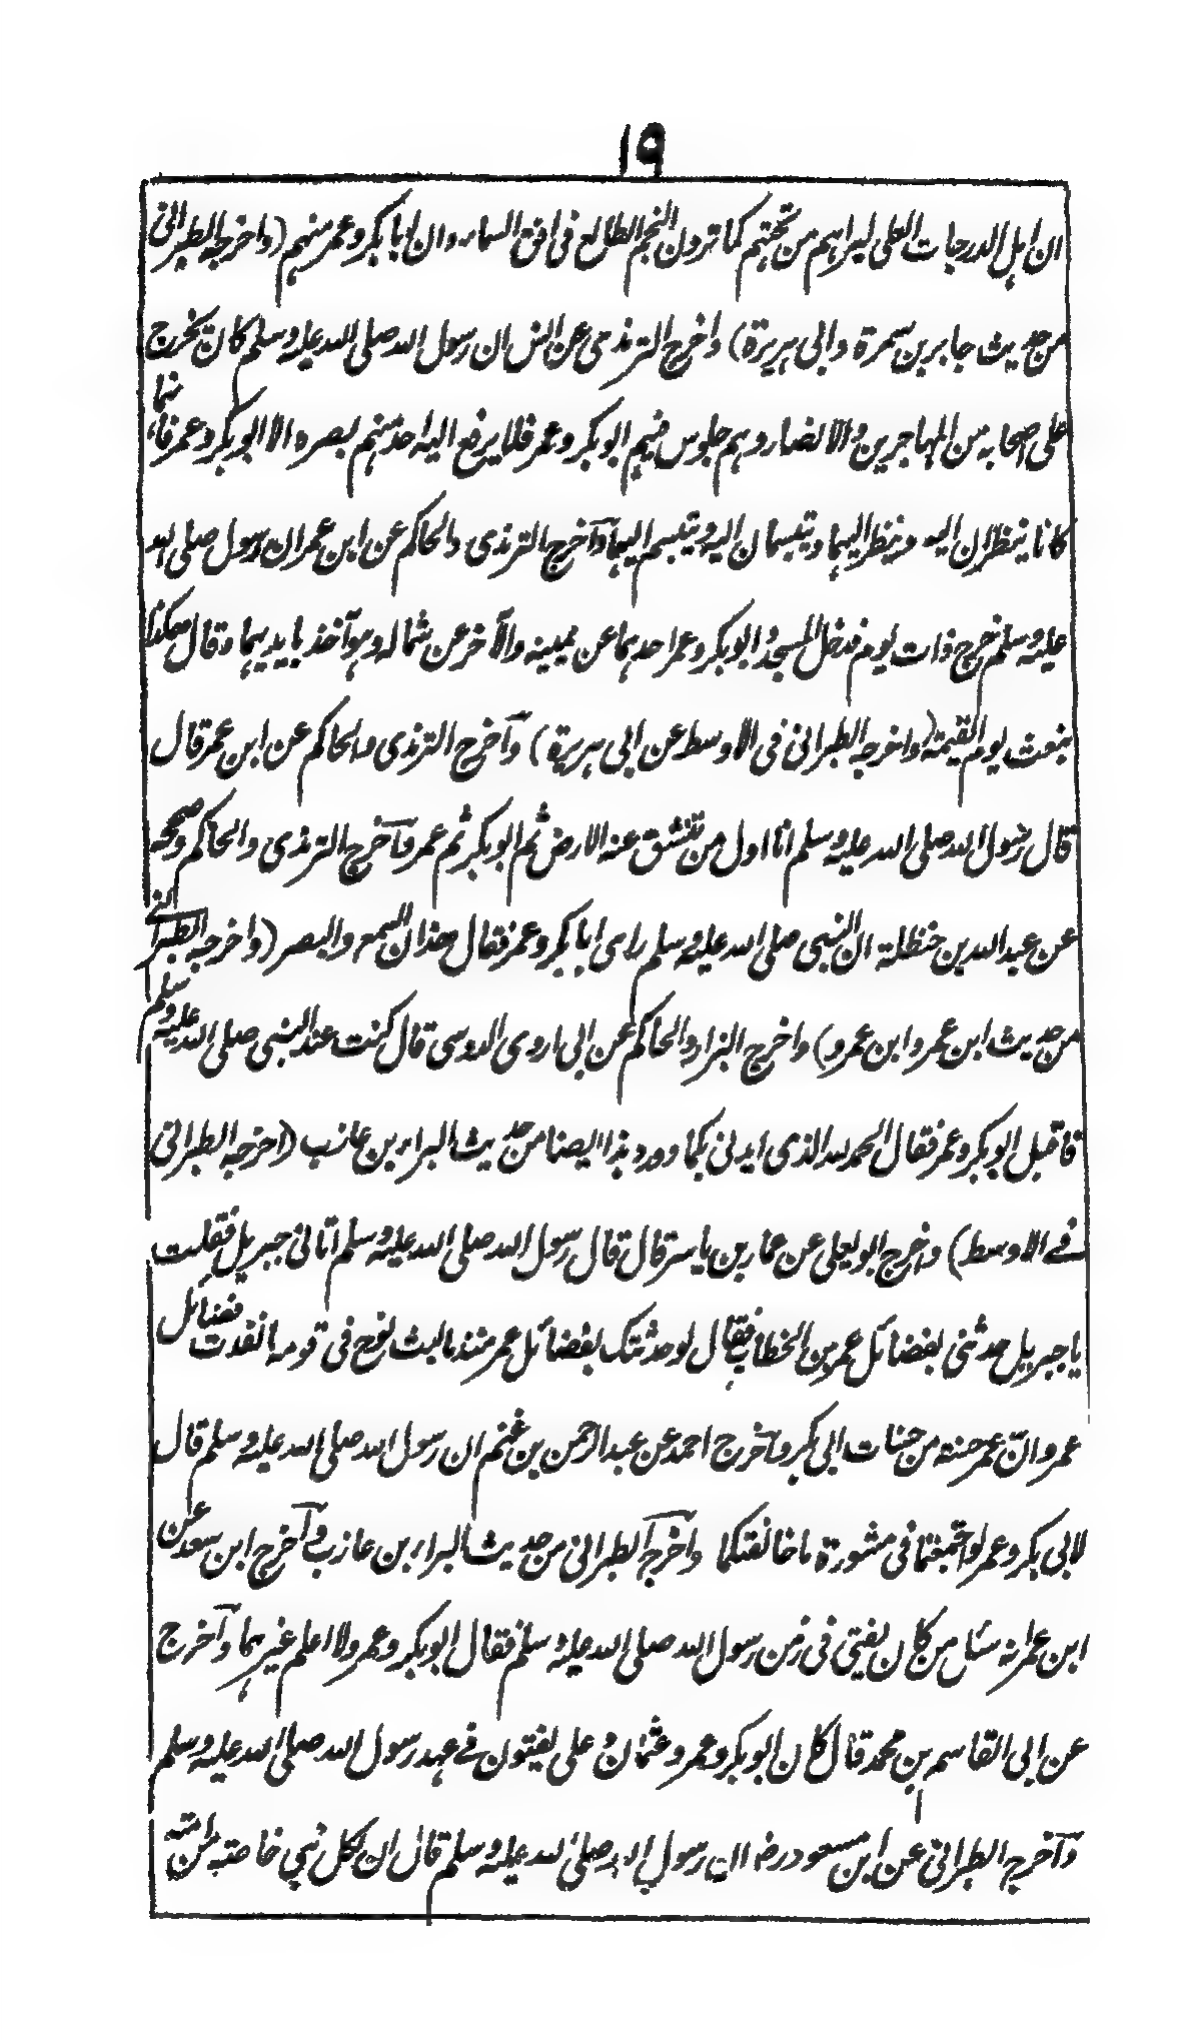 ١٩
ان اہل الدرجات العلى ليراہم من تحتہم كما ترون النجم الطالع فى افق السماء وان ابا بكر وعمر منہم (واخرجہ الطبرانى
من حديث جابر بن سمرة وابى ہريرة) واخرج الترمذى عن انس ان رسول اللہ صلى اللہ عليہ وسلم كان يخرج
على اصحابہ من المہاجرين والانصار وہم جلوس فيہم ابوبكر وعمر فلا يرفع اليہ احد منہم بصرہ الا ابوبكر وعمر فانہما
كانا ينظران اليہ وينظر اليہما ويتبسمان اليہ ويتبسم اليہما وآخرج الترمذى والحاكم عن ابن عمر ان رسول صلى اللہ
عليہ وسلم خرج ذات يوم فدخل المسجد وابوبكر وعمر احدہما عن يمينہ والآخر عن شمالہ وہو آخذ بايديہما وقال ھكذا
نبعث يوم القيٰمة (واخرجہ الطبرانى فى الاوسط عن ابى ہريرة) وآخرج الترمذى والحاكم عن ابن عمر قال
قال رسول اللہ صلى اللہ عليہ وسلم انا اول من تنشق عنہ الارض ثم ابوبكر ثم عمر وآخرج الترمذى والحاكم وصححہ
عن عبد اللہ بن حنظلة ان النبى صلى اللہ عليہ وسلم راى ابا بكر وعمر فقال ھذان السمع والبصر (واخرجہ الطبرانے
من حديث ابن عمر وابن عمرو) واخرج البزار والحاكم عن ابى اروى الدوسى قال كنت عند النبى صلى اللہ عليہ وسلم
فاقبل ابوبكر وعمر فقال الحمد للہ الذى ايدنى بكما وورد ہذا ايضا من حديث البراء بن عازب (اخرجہ الطبرانى
فے الاوسط) واخرج ابويعلى عن عمار بن ياسر قال قال رسول اللہ صلى اللہ عليہ وسلم اتانى جبريل فقلت
يا جبريل حدثنى بفضائل عمر بن الخطاب فقال لو حدثتك بفضائل عمر منذ ما لبث نوح فى قومہ ما نفدت فضائل
عمر وان عمر حسنة من حسنات ابى بكر وآخرج احمد عن عبد الرحمن بن غنم ان رسول اللہ صلى اللہ عليہ وسلم قال
لابى بكر وعمر لو اجتمعتما فى مشورة ما خالفتكما وآخرجہ الطبرانى من حديث البراء بن عازب وآخرج ابن سعد عن
ابن عمر انہ سئل من كان يفتى فى زمن رسول اللہ صلى اللہ عليہ وسلم فقال ابوبكر وعمر ولا اعلم غيرہما وآخرج
عن ابى القاسم بن محمد قال كان ابوبكر وعمر وعثمان وعلى يفتون فے عہد رسول اللہ صلى اللہ عليہ وسلم
وآخرج الطبرانى عن ابن مسعود رض ان رسول اللہ صلى اللہ عليہ وسلم قال ان لكل نبى خاصة من امتہ